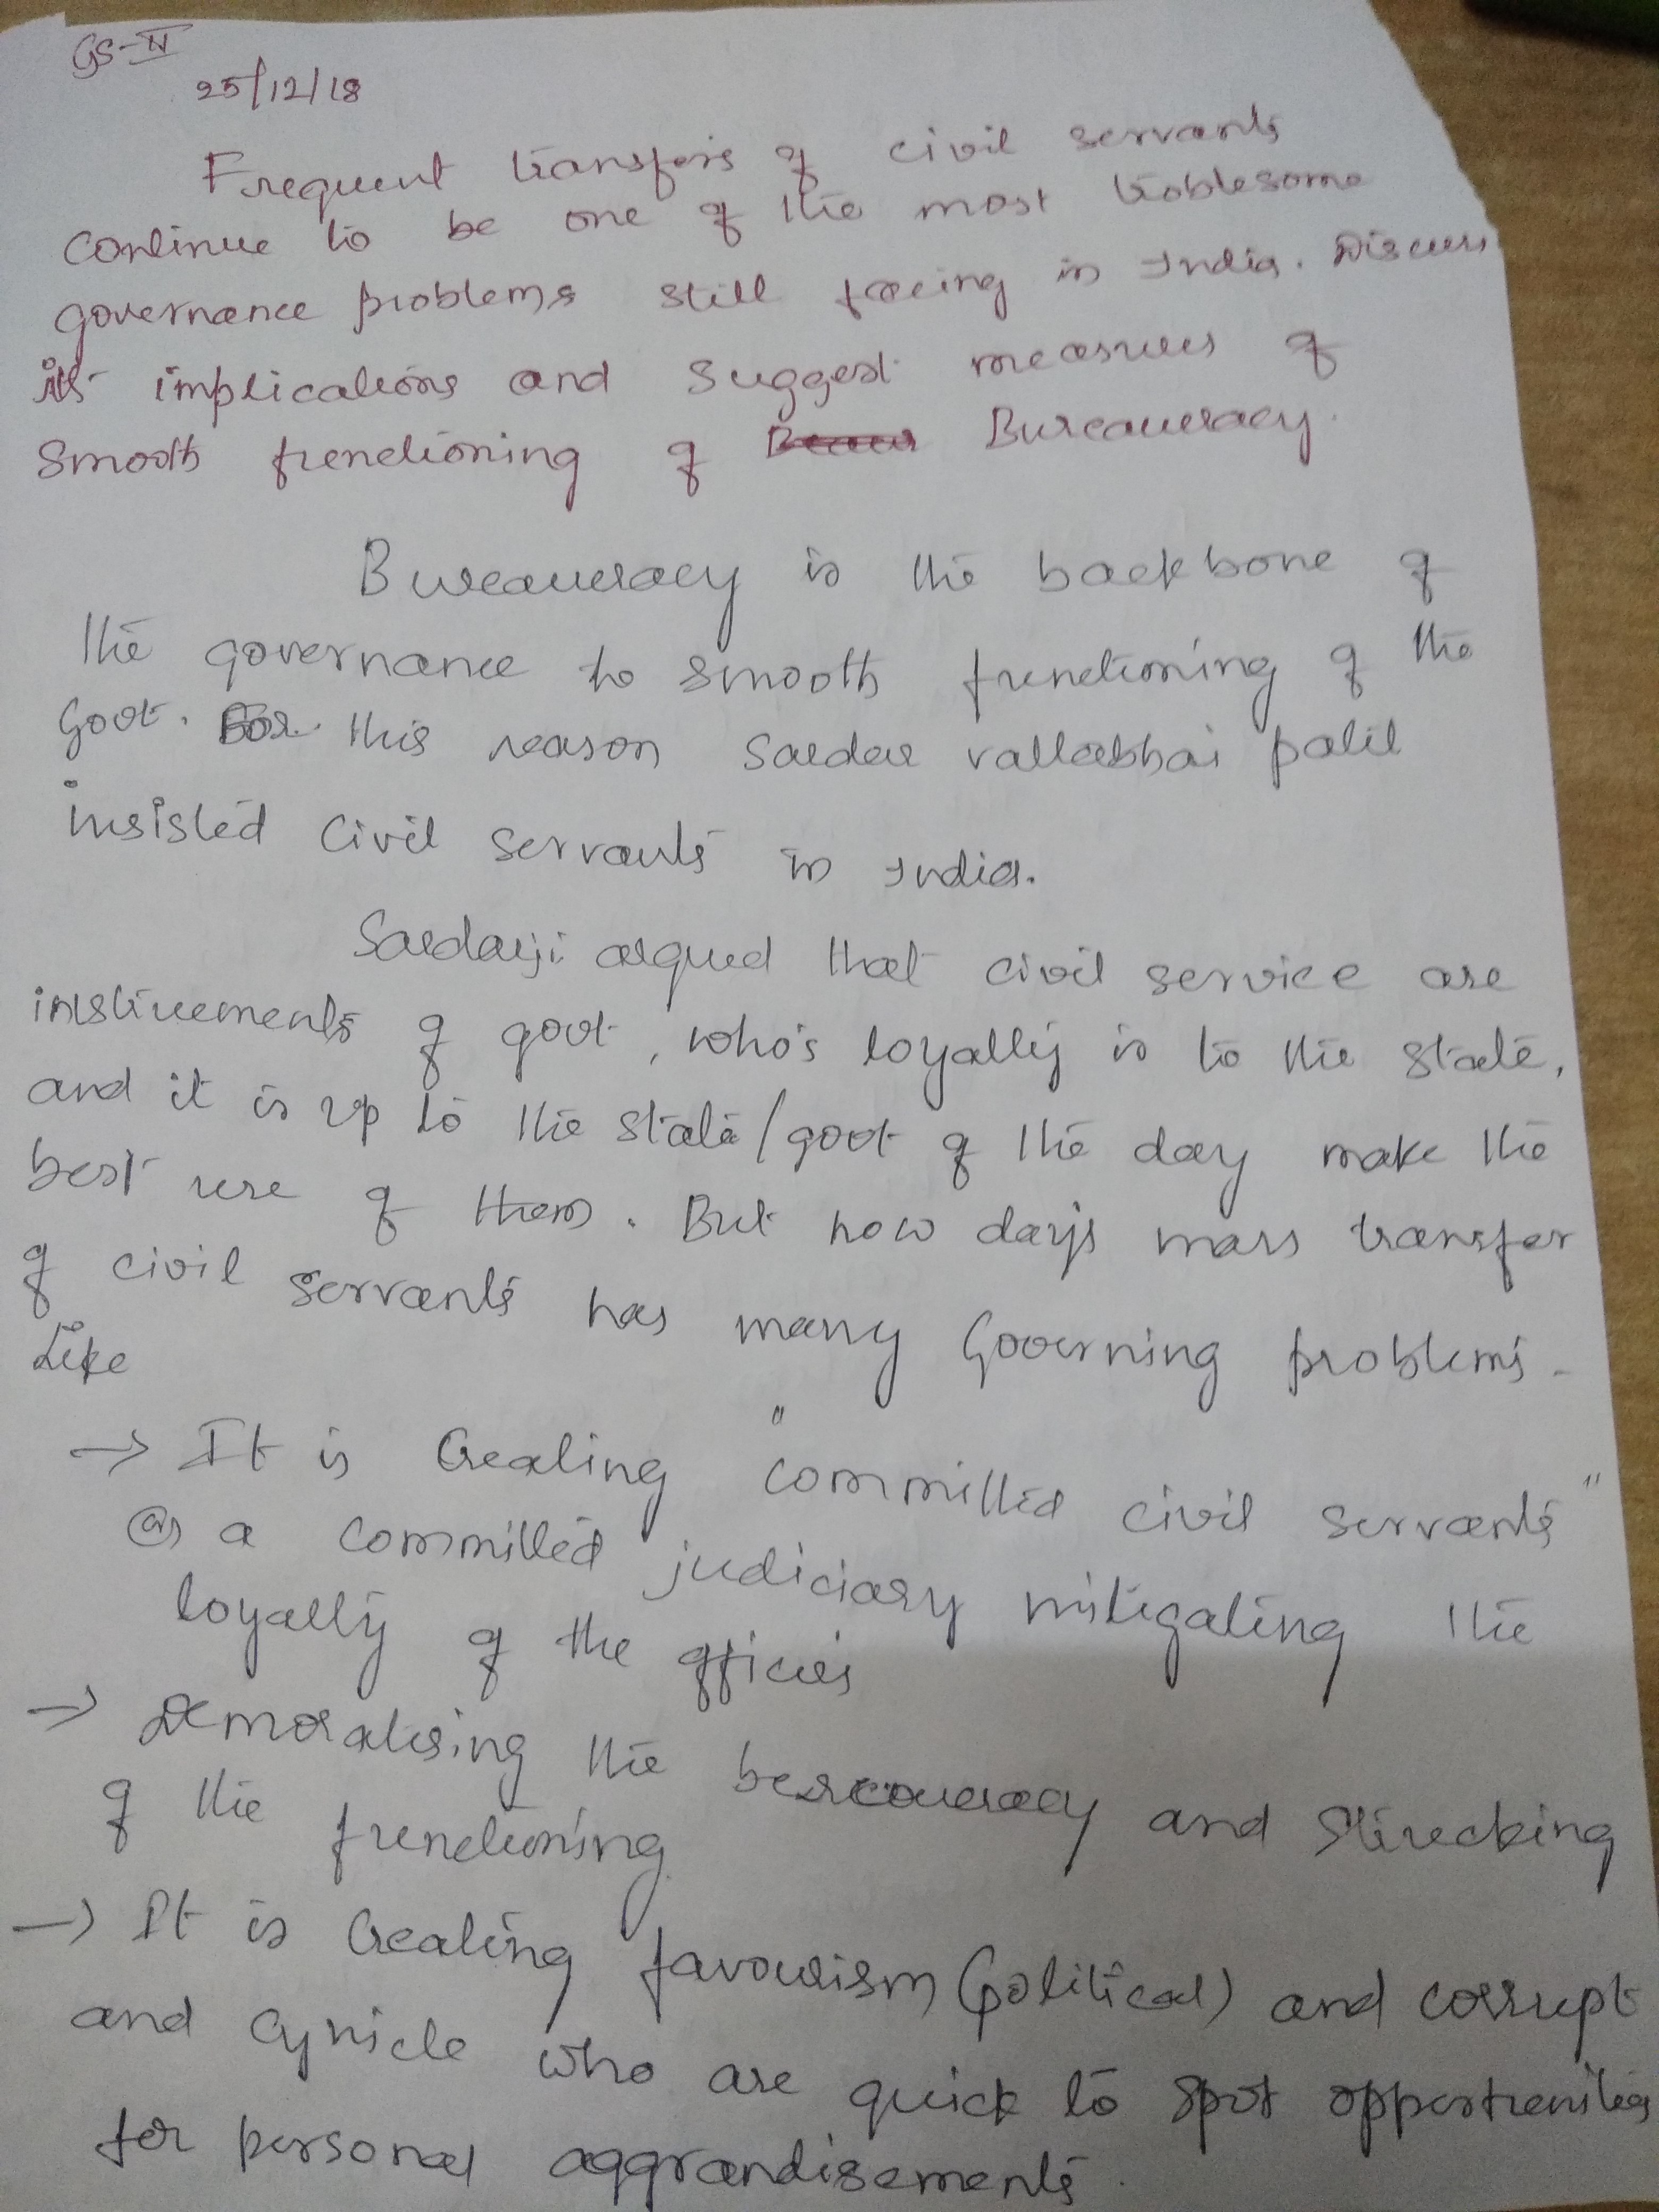 GS-II
25/12/18
Frequent transfers of civil servants
continue to be one of the most troblesome
governance problems still facing in India. Discuss
its implications and suggest measures of
smooth functioning of Bureaucracy.
Bureaucracy is the backbone of
the governance to smooth functioning of the
Govt. For this reason Sardar vallabbhai patil
insisted civil servants in India.
Sardarji argued that civil service are
instruements of govt, who's loyality is to the state,
and it is up to the state/govt of the day make the
best use of them. But now days mass transfer
of civil servants has many Governing problems.
Like
→ It is Creating "committed civil servants"
(or) a committed judiciary mitigating the
loyality of the officers
→ Demoralising the bereaucracy and strucking
of the functioning
→ It is Creating favourism (political) and corrupt
and cynicle who are quick to spot opportunities
for personal aggrandisements.